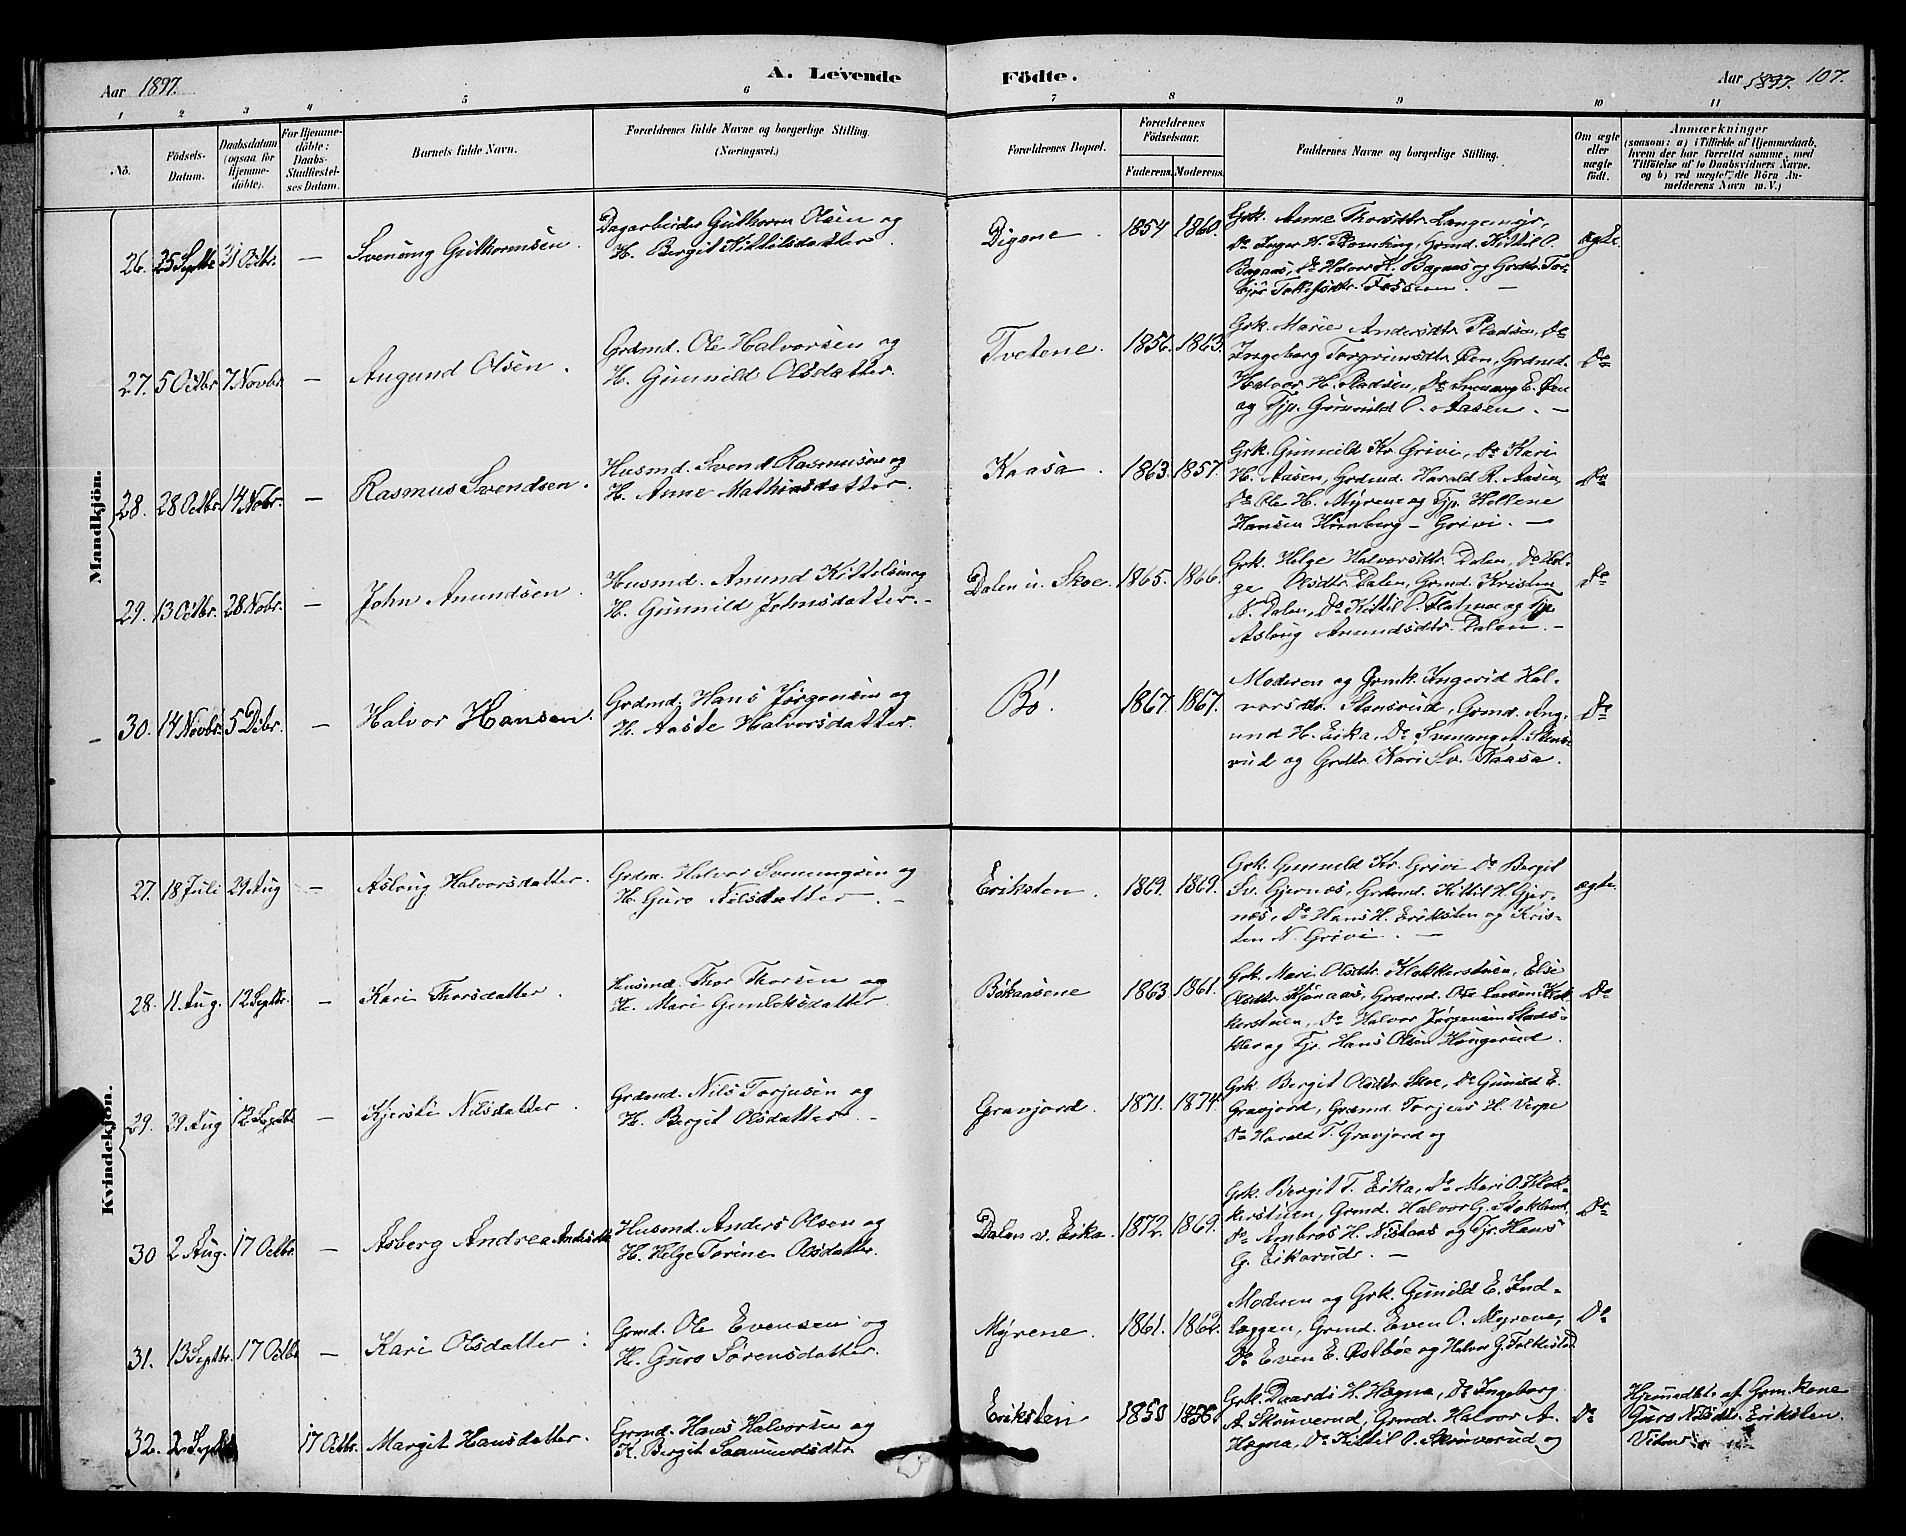 Aar 1897.
A. Levende
Födte.
Aar 1897. 107.
1 2 3 4 5 6 7 8 9 10 11
No.
Födsels-
Datum.
Daabsdatum
(ogsaa for
Hjemme-
döbte).
For Hjemme-
döbte:
Daabs-
Stadfæstel-
ses Datum.
Barnets fulde Navn.
Forældrenes fulde Navne og borgerlige Stilling.
(Næringsvei.)
Forældrenes Bopæl.
Forældrenes
Födselsaar.
Faderens. Moderens.
Faddernes Navne og borgerlige Stilling.
Om ægte
eller
uægte
födt.
Anmærkninger
(saasom: a) i Tilfælde af Hjemmedaab,
hvem der har forrettet samme, med
Tilföielse af to Daabsvidners Navne,
og b) ved uægtefödte Börn An-
melderens Navn m. V.)
Mandkjön.
26. 25 Septbr 31 Octbr. — Svenung Guthormsen.
Dagarbeider Guthorm Olsen og
H. Bergit Kittilsdatter.
Digene. 1854 1860.
Grk. Anne Thorsdtr. Langemyr,
Do Inger H. , Grmd. Kittil O.
Bagaas, Do Halvor K. Bagaas og Grdtr. Tor-
Tollefsdtr. Fossem. —
ægte.
27. 5 Octbr 7 Novbr — Augund Olsen.
Grdmd. Ole Halvorsen og
H. Gunnild Olsdatter.
Tvetene. 1856. 1863.
Grk. Marie Andersdtr. Pladsen, Do
Ingeborg Torgrimsdtr. Øen, Grdmd.
Halvor H. Pladsen, Do Svenung E. Øen
og Tjp. Gunnild O. Aasen. —
Do
28. 28 Octbr. 14 Nobr. — Rasmus Svendsen.
Husmd. Svend Rasmusen og
H. Anne Mathiasdatter.
Kaasa. 1863. 1857.
Grk. Gunnild Kr. Grivi, Do Kari
H. Aasen, Grdmd. Harald R. Aasen,
Do Ole H. Myrene og Tjp. Hellene
Hansen — Grivi. —
Do
29. 13 Octbr. 28 Nobr. — John Amundsen.
Husmd. Amund Kittelsen og
H. Gunnild Johnsdatter. -
Dalen u. Skoe. 1865. 1866.
Grk. Helge Halvorsdtr. Dalen, Do Hel-
ge Olsdtr. Dalen, Grmd. Kristen
N. Dalen, Do Kittil O. og Tjp.
Asloug Amundsdtr. Dalen. —
Do
30. 14 Novbr. 5 Dsbr. — Halvor Hansen.
Grdmd. Hans Jørgensen og
H. Aaste Halvorsdatter.
Bø. 1867. 1867.
Moderen og Grmk. Ingerid Hal-
vorsdtr. Stensrud, Grmd. Aug-
und H. Eika, Do Svenung A. Stens-
rud og Grdtr. Kari Sv. Kaasa.
Do
Kvindekjön.
27. 18 Juli 29 Aug — Aslaug Halvorsdatter.
Grdm. Halvor Svenungsen og
H. Guro Nilsdatter. -
Eriksten. 1869. 1869.
Grk. Gunnild Kr. Grivi Do Bergit
Sv. Gjernes, Grdmd. Kittil H. Gjer-
nes, Do Hans H. Eriksten og Kris-
ten N. Grivi. —
ægte.
28. 11 Aug. 12 Septbr. — Kari Thorsdatter.
Husmd. Thor Thorsen og
H. Mari Gunleksdatter.
Bökaasene 1863 1861.
Grk. Mari Olsdtr. Klokkerstuen, Else
Olsdtr. , Grdmd. Ole Larsen Klok-
kerstuen, Do Halvor Jørgensen Stads-
og Tjr. Hans Olsen Haugerud.
Do
29. 29 Aug 12 Septbr — Kjersti Nilsdatter.
Grdmd. Nils Torjusen og
H. Bergit Olsdatter. -
Gravjord. 1871. 1874.
Grk. Bergit Olsdtr. Skoe, Do Gunild E.
Gravjord, Grdmd. Torjus H. Verpe
Do Harald T. Gravjord og
30 2 Aug. 17 Octbr. — Asberg Andrea Andersdtr.
Husmd. Anders Olsen og
H. Helge Torine Olsdatter.
Dalen v. Eika. 1872. 1869.
Grk. Bergit T. Eika, Do Mari O. Klok-
kerstuen, Grmd. Halvor G.
Do Ambros H. Nisaas og Tjr. Hans
G. Eikarud. —
Do
31. 13 Septbr. 17 Octbr — Kari Olsdatter.
Grmd. Ole Evensen og
H. Guro Sørensdatter.
Myrene. 1861. 1862.
Moderen og Grk. Gunild E. Ind-
læggen, Grmd. Even O. Myrene,
Do Even E. Østbøe og Halvor G. Folkestad
Do
32. 2 Septbr 17 Octbr. Margit Hansdatter.
Grmd. Hans Halvorsen og
K. Bergit Saamundsdtr.
Eriksten 1850 1856
Grk. Daardi H. Hægna, Do Ingeborg
A. Skruverud, Grmd. Halvor A.
Hægna, Do Kittil O. Skruverud og
Do
Hjemmedbt. af Grm. kone
Guro Nilsdtr. Eriksten.